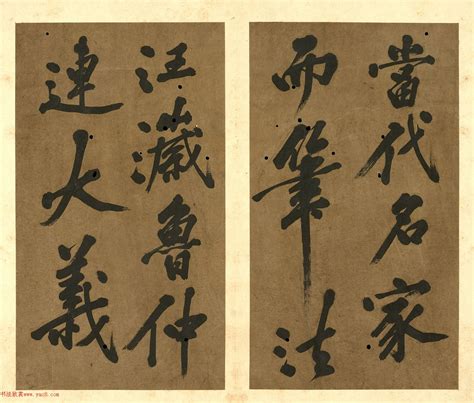 當代名家
而筆法
汪濊魯仲
連大義
书法欣赏www.yac8.com